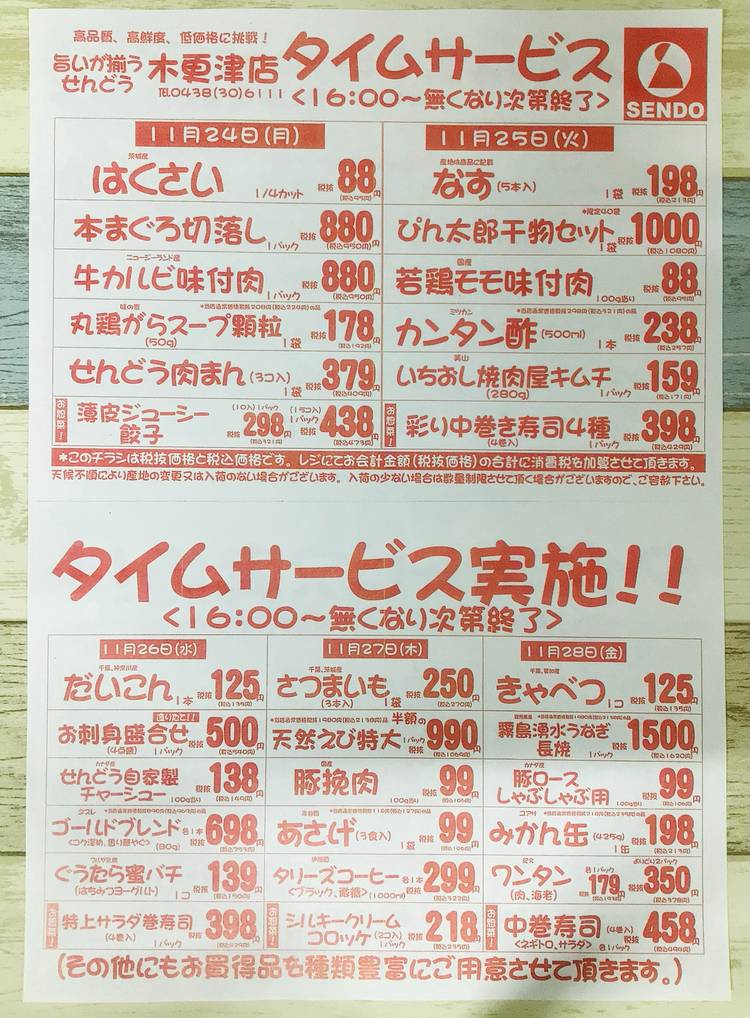 高品質、高鮮度、低価格に挑戦！
旨いが揃う
せんどう
木更津店
タイムサービス
TEL0438(30)6111
<16:00～無くなり次第終了>
SENDO
11月24日(月)
茨城産
はくさい
1/4カット
税抜 88円
(税込95円)
本まぐろ切落し
1パック
税抜 880円
(税込950円)
ニュージーランド産
牛カルビ味付肉
1パック
税抜 880円
(税込950円)
味の素
*当店通常価格税抜208円(税込224円)の品
丸鶏がらスープ顆粒
(50g)
1袋
税抜 178円
(税込192円)
せんどう肉まん(3コ入)
1袋
税抜 379円
(税込409円)
お惣菜！
薄皮ジューシー
餃子
(10入)1パック
税抜 298円
(税込321円)
(15コ入)
1パック
税抜 438円
(税込473円)
11月25日(火)
産地は商品に記載
なす(5本入)
1袋
税抜 198円
(税込213円)
*限定40袋
ぴん太郎干物セット
1袋
税抜 1000円
(税込1080円)
国産
若鶏モモ味付肉
100g当り
税抜 88円
(税込95円)
ミツカン
*当店通常価格税抜298円(税込321円)の品
カンタン酢(500ml)
1本
税抜 238円
(税込257円)
美山
いちおし焼肉屋キムチ
(280g)
1パック
税抜 159円
(税込171円)
お惣菜！
彩り中巻き寿司4種
(4巻入)
1パック
税抜 398円
(税込429円)
*このチラシは税抜価格と税込価格です。レジにてお会計金額(税抜価格)の合計に消費税を加算させて頂きます。
天候不順により産地の変更又は入荷のない場合がございます。入荷の少ない場合は数量制限させて頂く場合がございますので、ご容赦下さい。
タイムサービス実施！！
<16:00～無くなり次第終了>
11月26日(水)
千葉、神奈川産
だいこん
1本
税抜 125円
(税込135円)
造りたて！！
お刺身盛合せ
(4点盛)
1パック
税抜 500円
(税込540円)
カナダ産
せんどう自家製
チャーシュー
100g当り
税抜 138円
(税込149円)
ネスレ
ゴールドブレンド
<コク深め、香り華やぐ>
(80g)
各1本
税抜 698円
(税込753円)
フジヤ乳業
ぐうたら蜜バチ
(はちみつヨーグルト)
1コ
税抜 139円
(税込150円)
お惣菜！
特上サラダ巻寿司
(4巻入)
1パック
税抜 398円
(税込429円)
11月27日(木)
千葉、茨城産
さつまいも
(3本入)
1袋
税抜 250円
(税込270円)
*当店通常価格税抜1980円(税込2138円)の品
半額の
天然えび特大
1パック
税抜 990円
(税込1069円)
国産
豚挽肉
100g当り
税抜 99円
(税込106円)
永谷園
*当店通常価格税抜118円(税込127円)の品
あさげ(3食入)
1袋
税抜 99円
(税込106円)
伊藤園
タリーズコーヒー
<ブラック、微糖>
(1000ml)
各1本
税抜 299円
(税込322円)
お惣菜！
シルキークリーム
コロッケ
(2コ入)
1パック
税抜 218円
(税込235円)
11月28日(金)
千葉、愛知産
きゃべつ
1コ
税抜 125円
(税込135円)
鹿児島産
霧島湧水うなぎ
長焼
1パック
税抜 1500円
(税込1620円)
カナダ産
豚ロース
しゃぶしゃぶ用
100g当り
税抜 99円
(税込106円)
コアサ
みかん缶(425g)
1缶
税抜 198円
(税込213円)
紀文
ワンタン
(肉、海老)
各1パック
税抜 179円
(税込193円)
よりどり2パック
税抜 350円
(税込378円)
お惣菜！
中巻寿司(4巻入)
<ネギトロ、サラダ>
各1パック
税抜 458円
(税込494円)
(その他にもお買得品を種類豊富にご用意させて頂きます。)